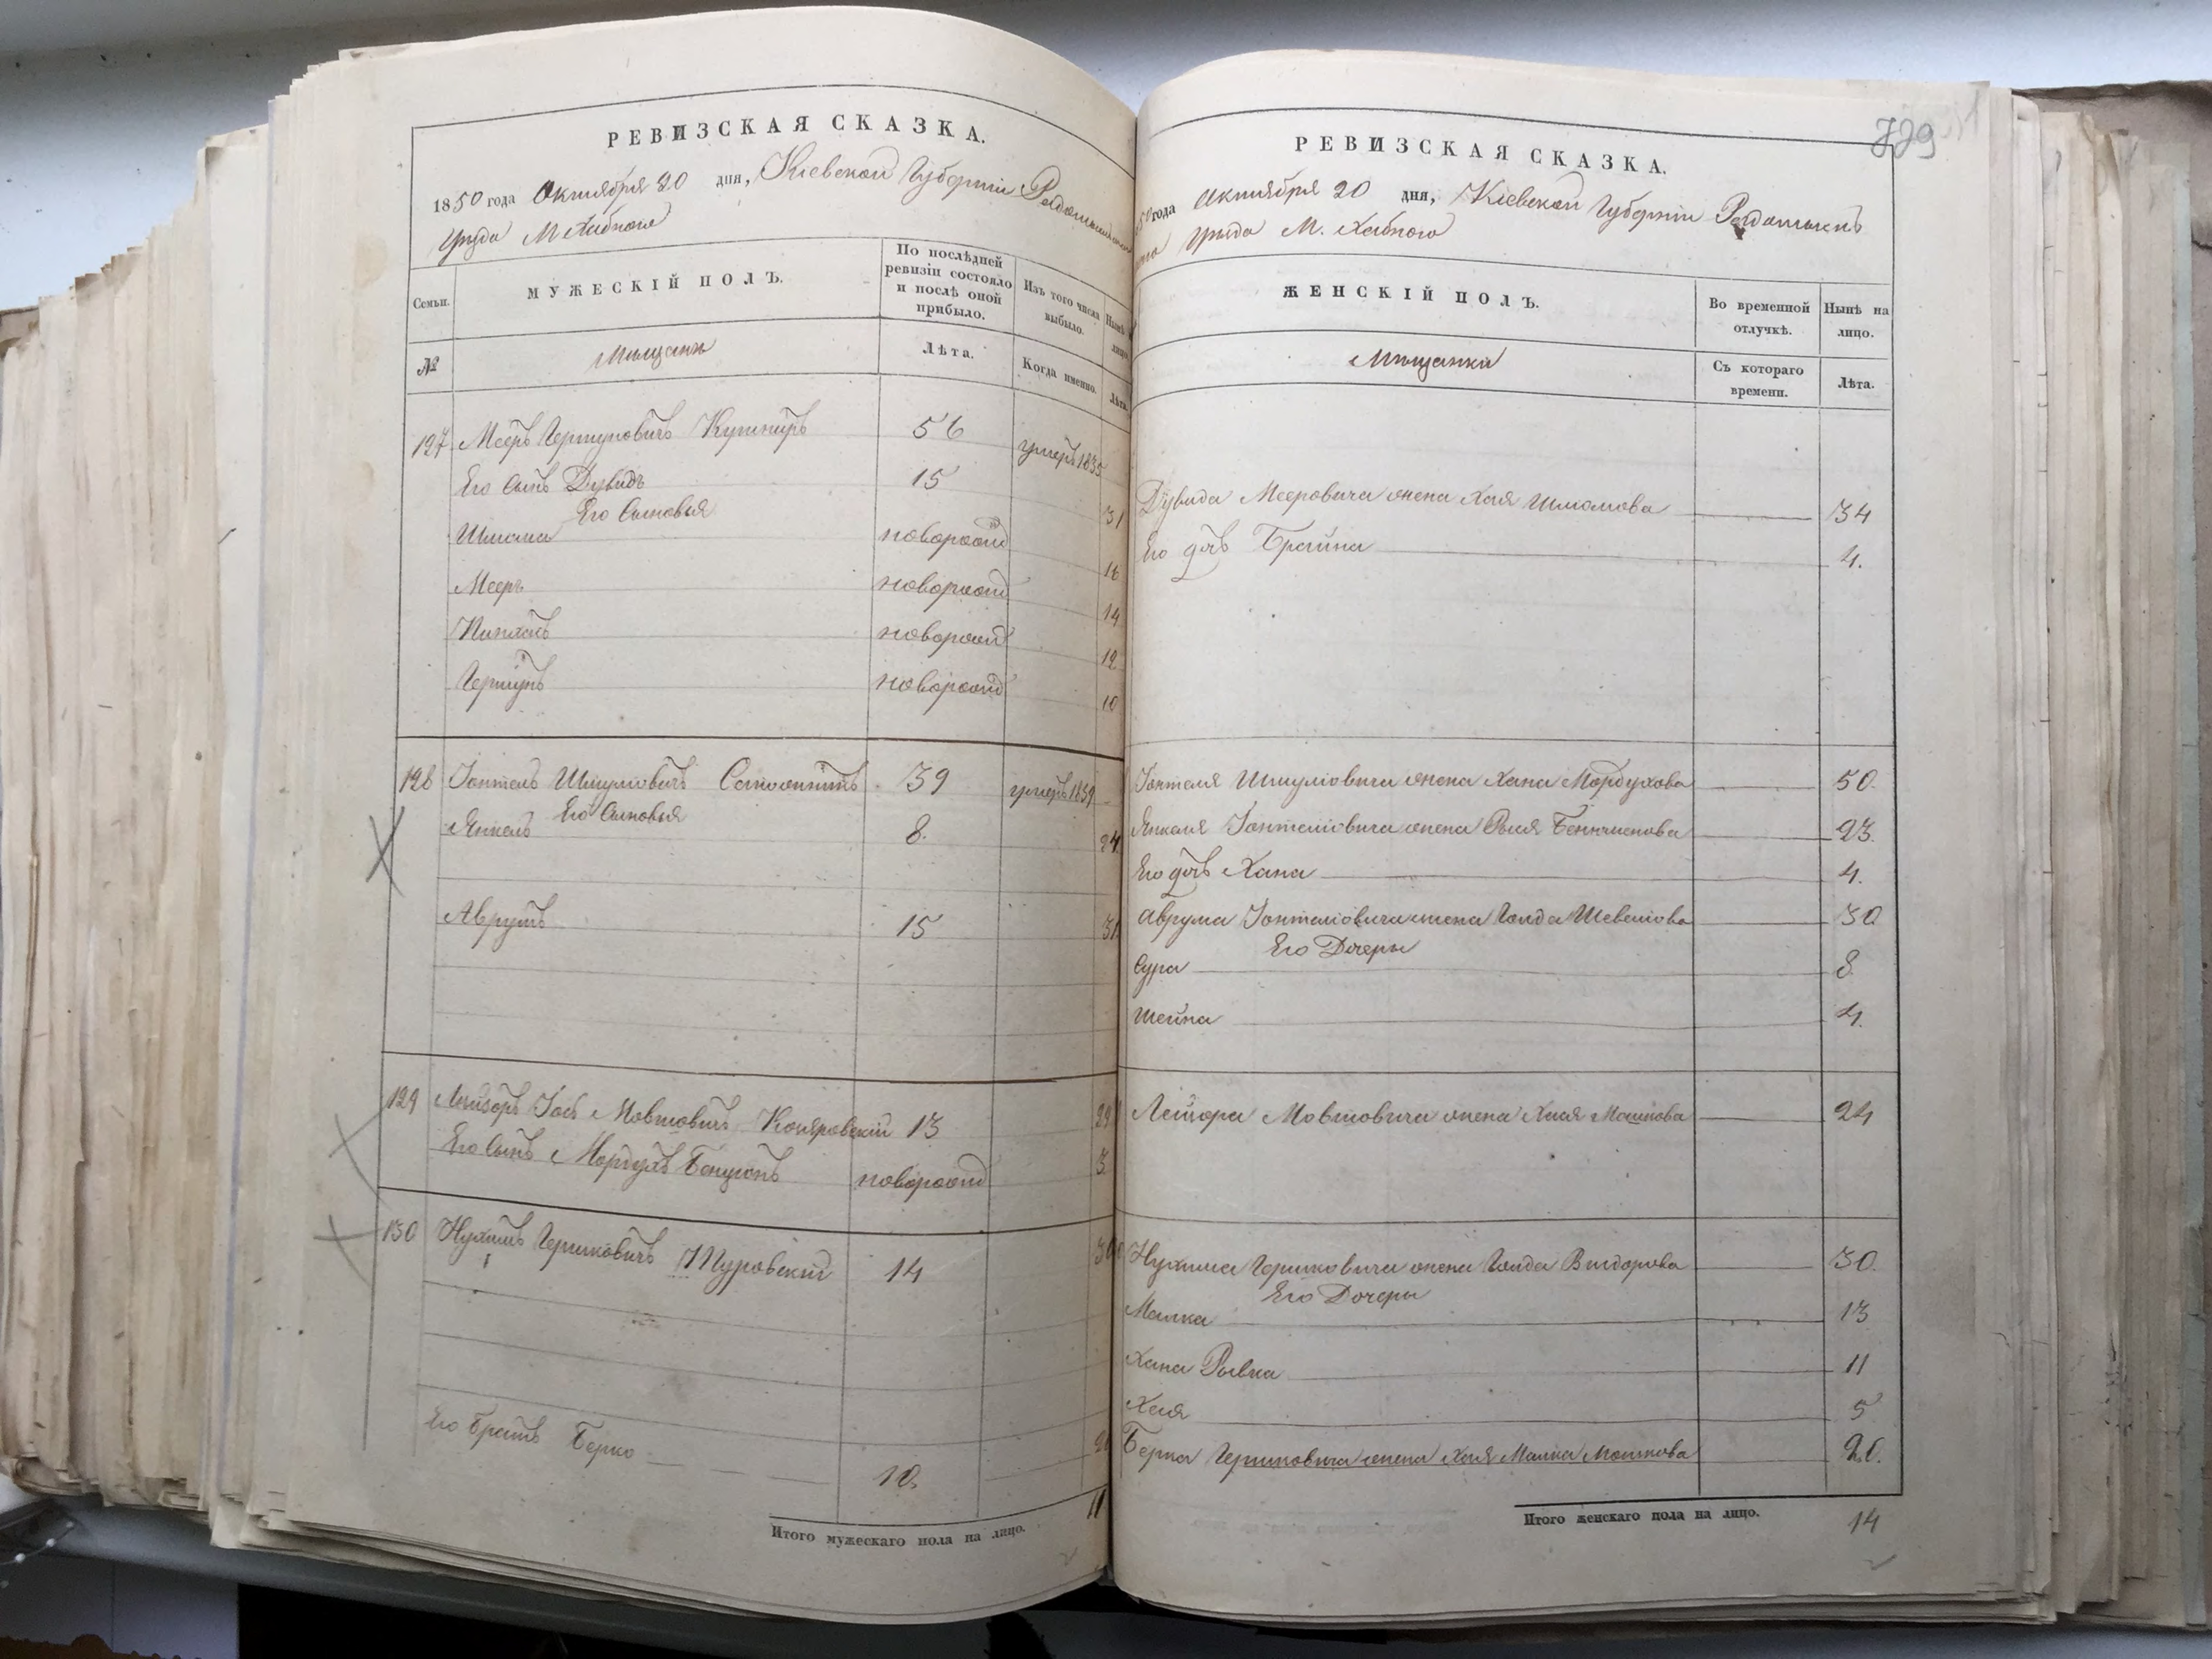 РЕВИЗСКАЯ СКАЗКА.
1850 года Октября 20 дня, Кіевской Губерніи Радомысльского
уезда М. Хабного
Семьи.
МУЖЕСКІЙ ПОЛЪ.
По послѣдней ревизіи состояло и послѣ оной прибыло.
Изъ того числа выбыло.
Нынѣ на лицо.
№
Мещане
Лѣта.
Когда именно.
Лѣта.
127 Мееръ Гершуновичъ Кушниръ 56 умеръ 1835
Его Сынъ Дувидъ 15 31
Его Сыновья
Шлома новорожд 16
Мееръ новорожд 14
Пинхасъ новорожд 12
Гершунъ новорожд 10
128 Іонтель Шмуліовичъ 39 умеръ 1839
Его Сыновья
Янкель 8. 24
Аврумъ 15 31
129 Лейзоръ Іось Мовшовичъ 13 29
Его Сынъ Мордухъ Бенционъ новорожд 3
130 Нухимъ Гершковичъ Туровскій 14 30
Его Братъ Берко 10. 26
Итого мужескаго пола на лицо. 11
729
РЕВИЗСКАЯ СКАЗКА.
1850 года Октября 20 дня, Кіевской Губерніи Радомысль
ского уезда М. Хабного
ЖЕНСКІЙ ПОЛЪ.
Во временной отлучкѣ.
Нынѣ на лицо.
Мещанки
Съ котораго времени.
Лѣта.
Дувида Мееровича жена Хая Шломова 34
Его дочь Брайна 4.
Іонтеля Шмуліовича жена Хана Мордухова 50.
Янкеля Іонтеліовича жена 23.
Его дочь Хана 4.
Аврума Іонтеліовича жена Голда 30
Его Дочеры
Сура 8
Шейна 4.
Лейзора Мовшовича жена Хая Мошкова 24
Нухима Гершковича жена Голда 30.
Его Дочеры
Малка 13
Хана Рывка 11
Хая 5
Берка Гершковича жена Хая Малка Мошкова 26.
Итого женскаго пола на лицо. 14